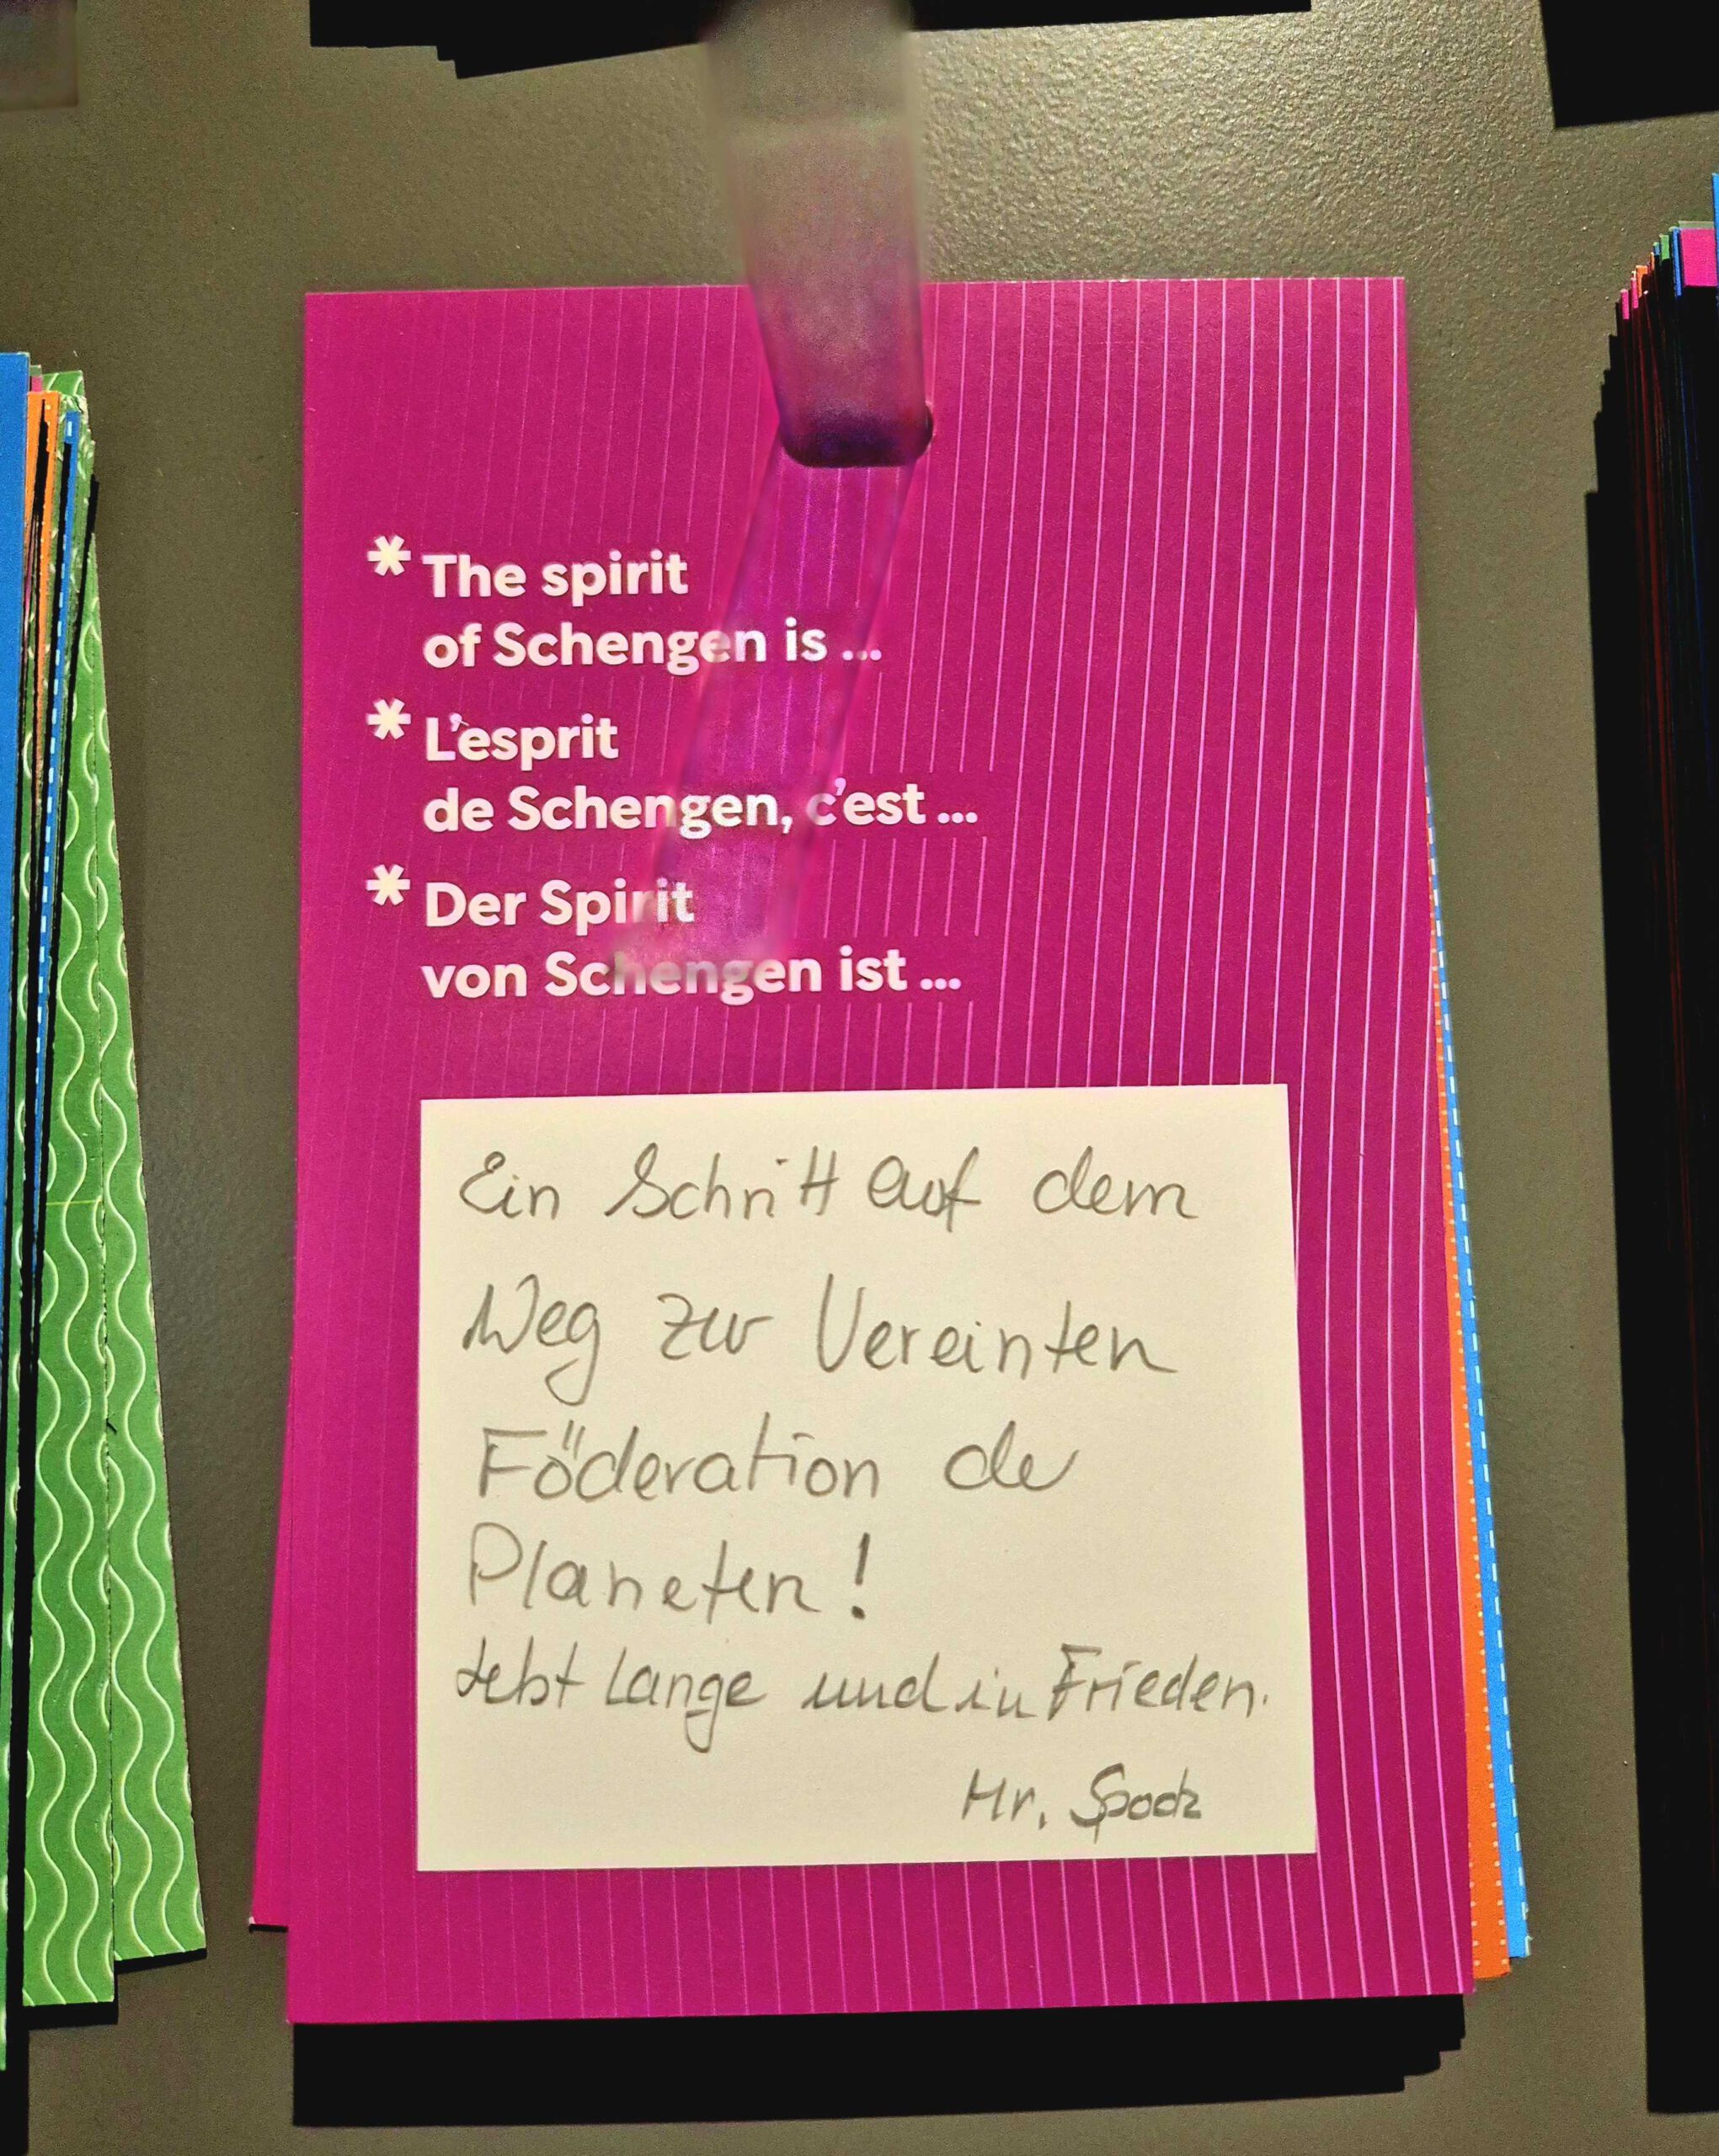 * The spirit
of Schengen is ...
* L'esprit
de Schengen, c'est ...
* Der Spirit
von Schengen ist ...
Ein Schritt auf dem
Weg zur Vereinten
Föderation der
Planeten!
Lebt lange und in Frieden.
Mr. Spock